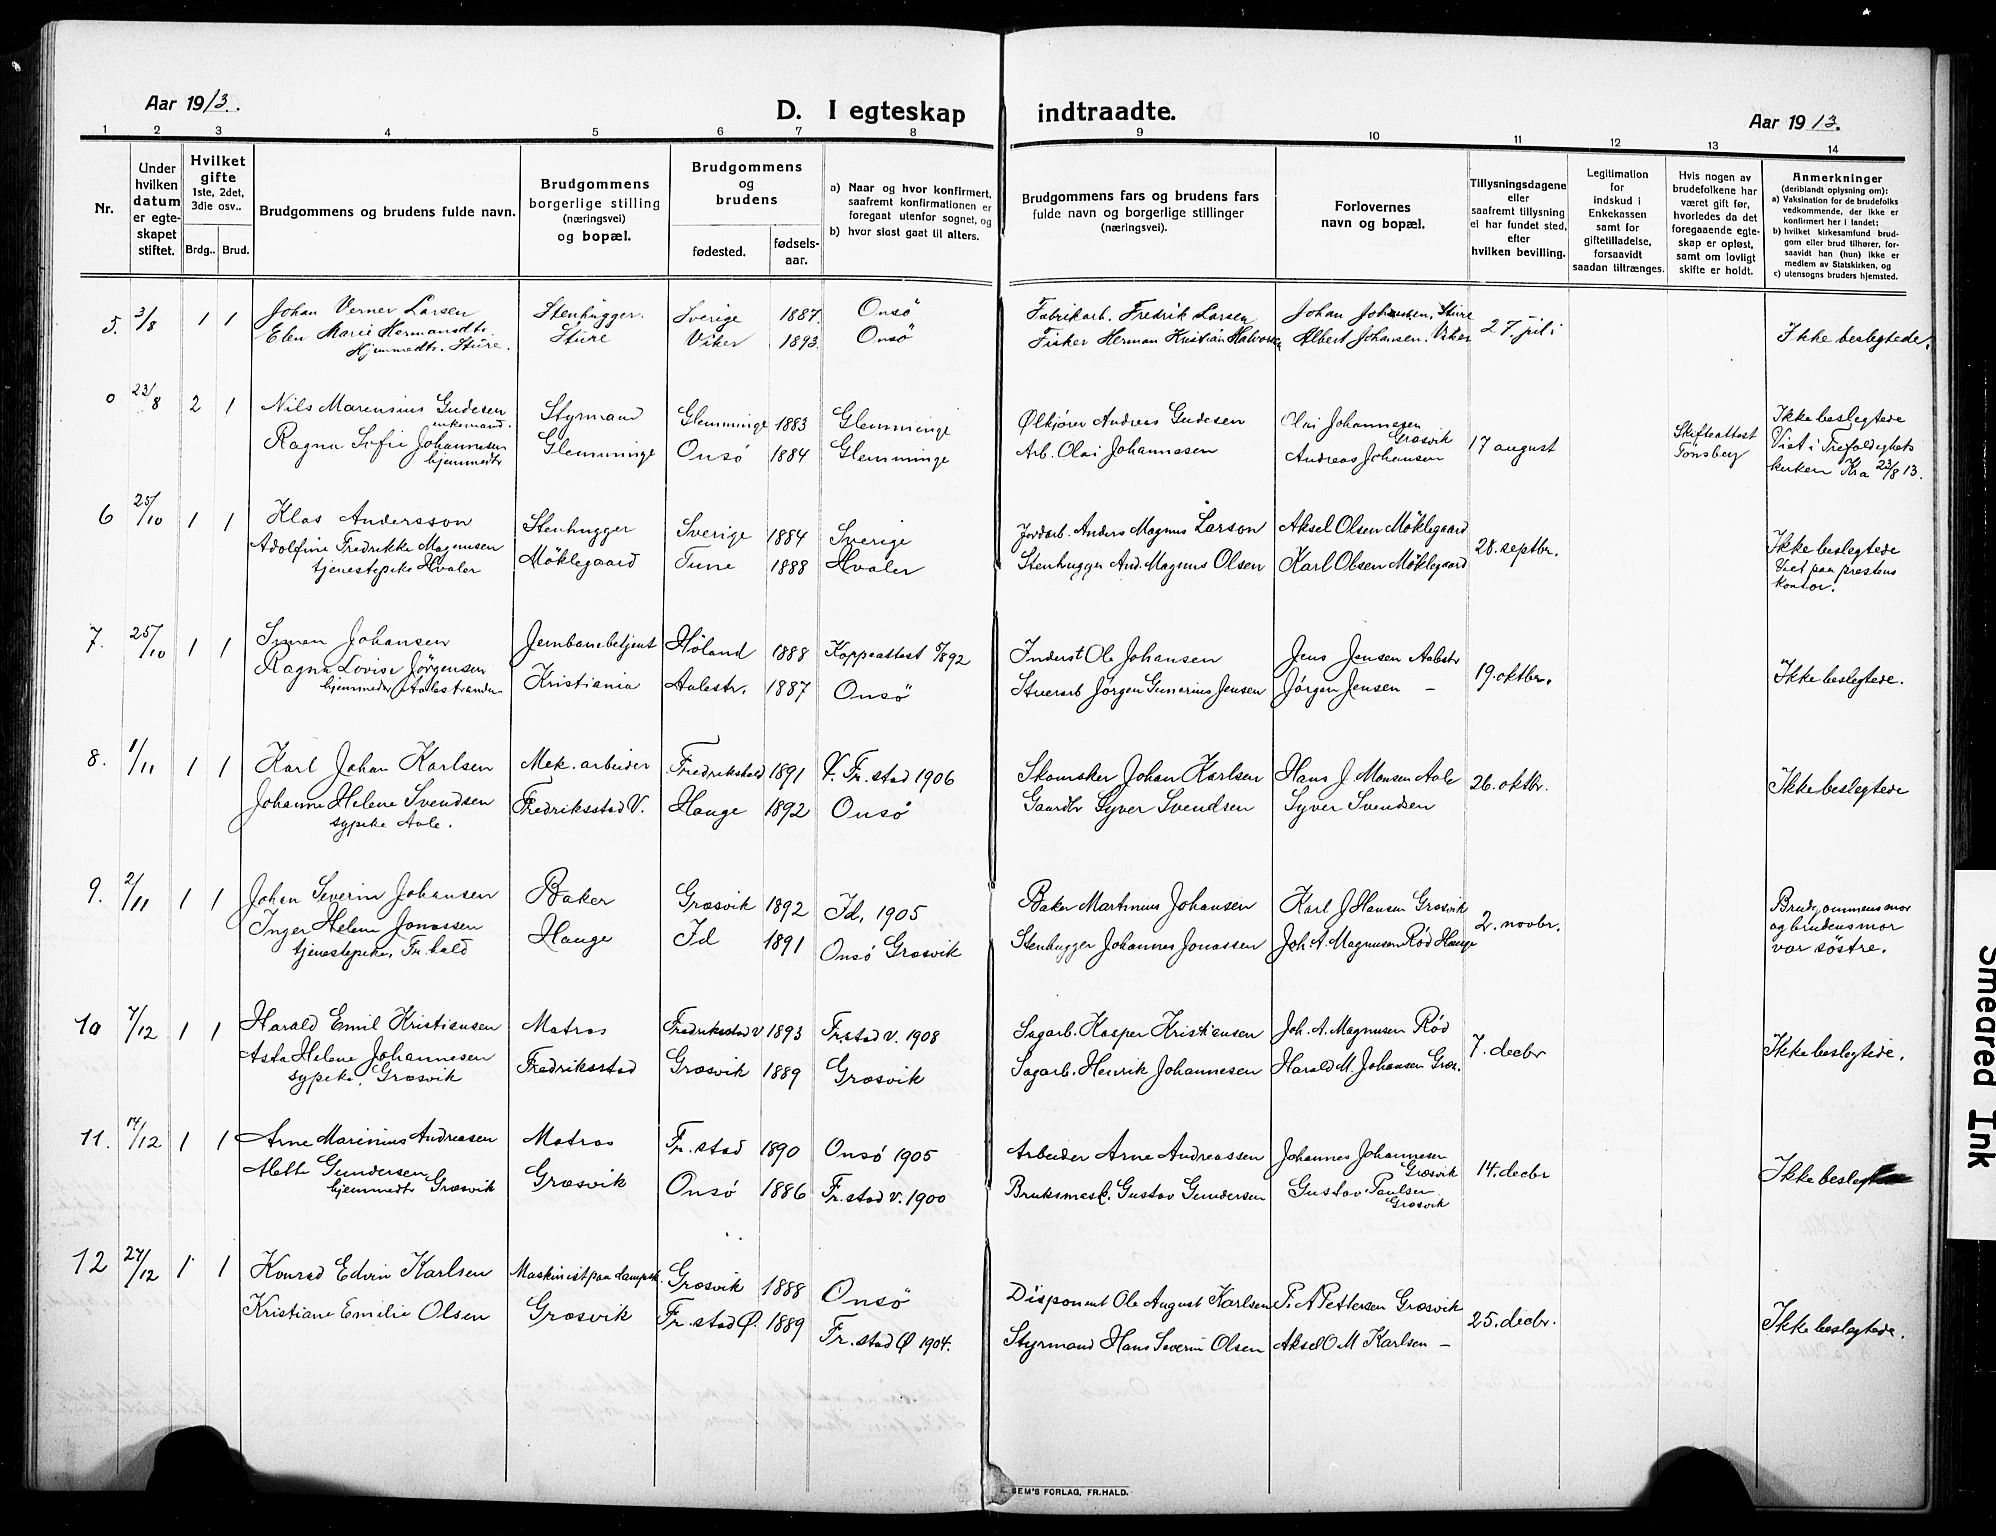 Aar 1913.
D. I egteskap indtraadte.
Aar 1913.
1 2 3 4 5 6 7 8 9 10 11 12 13 14
Nr.
Under hvilken datum er egteskapet stiftet.
Hvilket gifte 1ste, 2det, 3die osv..
Brdg.. Brud.
Brudgommens og brudens fulde navn.
Brudgommens borgerlige stilling (næringsvei) og bopæl.
Brudgommens og brudens
fødested.
fødselsaar.
a) Naar og hvor konfirmert, saafremt konfirmationen er foregaat utenfor sognet, og
b) hvor sidst gaat til alters.
Brudgommens fars og brudens fars fulde navn og borgerlige stillinger (næringsvei).
Forlovernes navn og bopæl.
Tillysningsdagene eller saafremt tillysning ei har fundet sted, efter hvilken bevilling.
Legitimation for indskud i Enkekassen samt for giftetilladelse, forsaavidt saadan tiltrænges.
Hvis nogen av brudefolkene har været gift før, hvorledes da det foregaaende egteskap er opløst, samt om lovligt skifte er holdt.
Anmerkninger (deriblandt oplysning om):
a) Vaksination for de brudefolks vedkommende, der ikke er konfirmert her i landet;
b) hvilket kirkesamfund brudgom eller brud tilhører, forsaavidt han (hun) ikke er medlem av Statskirken, og
c) utensogns bruders hjemsted.
5. 3/8 1 1 Johan Verner Larsen Stenhugger. Sverige 1887. Onsö Fabrikarb. Fredrik Larsen Johan Johansen, Sture 27. juli
Elen Marie Hermansdtr. Sture Viker 1893. Onsö Fisker Herman Kristian Halvorsen Albert Johansen. Viker Ikke beslegtede.
Hjemmedtr. Sture.
0 23/8 2 1 Nils Marensius Gudesen Styrmand Glemminge 1883 Glemminge Ølkjører Andreas Gudesen Olai Johannesen Ikke beslegtede
enkemand. Græsvik Skifteattest Viet i Trefoldighets
Ragna Sofie Johannesen Glemminge Onsö 1884 Glemminge Arb. Olai Johannesen Andreas Johansen 17 august Tönsberg kirken Kra 23/8 13.
hjemmedtr
6 25/10 1 1 Klas Andersson Stenhugger Sverige 1884 Sverige Jordarb. Anders Magnus Larson Aksel Olsen Möklegaard 28. septbr.
Adolfine Fredrikke Magnusen Möklegaard Tune 1888 Hvaler Stenhugger And. Magnus Olsen Karl Olsen Möklegaard Ikke beslegtede
tjenestepike Hvaler Viet paa prestens
kontor.
7. 25/10 1 1 Simen Johansen Jernbanebetjent Höland 1888 Koppeattest Inderst Ole Johansen Jens Jensen Aalestr
Ragna Lovise Jörgensen Kristiania Aalestr. 1887 Onsö Stuerarb Jörgen Gunerius Jensen Jörgen Jensen — 19. oktbr. Ikke beslegtede.
hjemmedtr Aalestranden
8. 1/11 1 1 Karl Johan Karlsen Mek. arbeider Fredrikshald 1891 V. Fr.stad 1906 Skomaker Johan Karlsen Hans J. Monsen Aale 26. oktbr. Ikke beslegtede
Johanne Helene Svendsen Fredriksstad V. Hauge 1892 Onsö Gaardbr Syver Svendsen Syver Svendsen
sypike Aale.
9. 2/11 1 1 Johan Severin Johansen Baker Græsvik 1892 Id, 1905 Baker Martinius Johansen Karl J Hansen Græsvik 2. novbr. Brudgommens mor
Inger Helene Jonassen Hauge Id 1891 Onsö Græsvik Stenhugger Johannes Jonassen Joh. A. Magnusen Röd Hauge og brudens mor
tjenestepike. Fr.hald var söstre.
10 7/12 1 1 Harald Emil Kristiansen Matros Fredriksstad V 1893 Fr.stad V. 1908 Sagarb. Kasper Kristiansen Joh. A. Magnusen Röd
Asta Helene Johannesen Fredriksstad Græsvik 1889 Græsvik Sagarb. Henrik Johannesen Harald M. Johansen Græs. 7. decbr Ikke beslegtede.
sypike. Græsvik
11. 14/12 1 1 Arne Marinius Andreasen Matros Fr.stad 1890 Onsö 1905 Arbeider Arne Andreassen Johannes Johannesen
Græsvik
Mette Gundersen Græsvik Onsö 1886 Fr.stad V. 1900 Bruksmesk. Gustav Gundersen Gustav Paulsen 14. decbr Ikke besleg
hjemmedtr Græsvik Græsvik
12 27/12 1 1 Konrad Edvin Karlsen Maskinist paa dampsk. Græsvik 1888 Onsö Disponent Ole August Karlsen P. A Pettersen Græsvik
Kristiane Emilie Olsen Græsvik Fr.stad Ø. 1889 Fr.stad Ø 1904. Styrmand Hans Severin Olsen Aksel O M Karlsen — 25. decbr. Ikke beslegtede.
SEM'S FORLAG, FR.HALD.
Smeared Ink